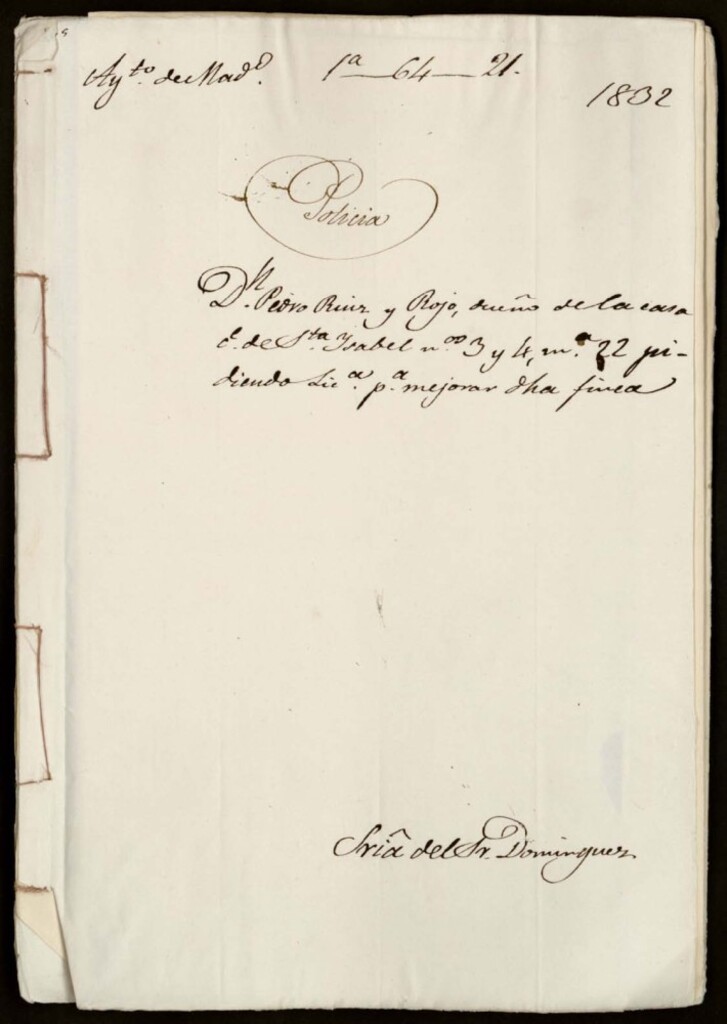 Ay.to de Mad.d 1a 64 21.
1832
Policia
D.n Pedro Ruiz y Rojo, dueño de la casa
c. de S.ta Ysabel n.os 3 y 4, m.a 22 pi-
diendo Lic.a p.a mejorar dha finca
Sria del Sr. Dominguez